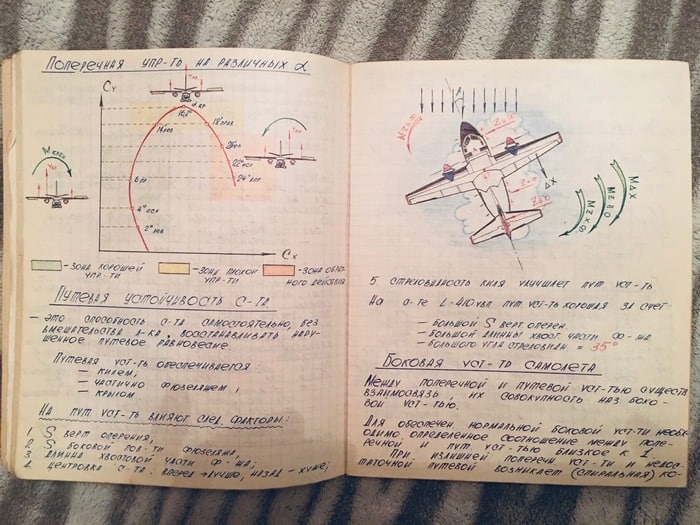 Поперечная упр-ть на различных α
Cy
α кр
16,5°
14
18°
22°
24°
6
4°
2°
Cx
- зона хорошей
упр-ти
- зона плохой
упр-ти
- зона обрат
ного действия
Путевая устойчивость с-та
- это способность с-та самостоятельно, без
вмешательства л-ка, восстанавливать нару-
шенное путевое равновесие.
Путевая уст-ть обеспечивается:
- килем;
- частично фюзеляжем;
- крылом
На пут. уст-ть влияют след. факторы:
1 S верт оперения,
2 S боковой пов-ти фюзеляжа,
3 длинна хвостовой части ф-жа;
4 центровка с-та: вперед → лучше, назад - хуже;
ΔX
MΔX
5 стреловидность киля улучшает пут. уст-ть
На с-те L-410 увп пут. уст-ть хорошая за счет:
- большой S верт оперен.
- большой длинны хвост части ф-жа
- большого угла стреловидн = 35°
Боковая уст-ть самолета
Между поперечной и путевой уст-тью существ
взаимосвязь их совокупность наз боко-
вой уст-тью.
Для обеспечен. нормальной боковой уст-ти необх-
димо определенное соотношение между попе-
речной и пут уст-тью близкое к 1.
При излишней поперечн уст-ти и недос-
таточной путевой возникает (спиральная) ко-